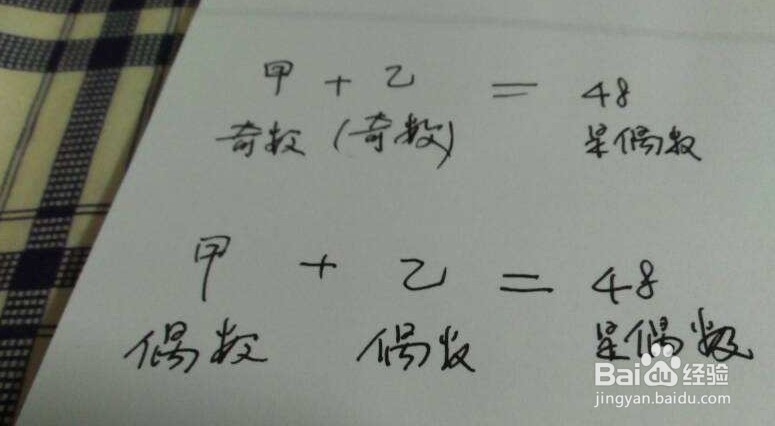 甲 + 乙 = 48
奇数 (奇数) 是偶数
甲 + 乙 = 48
偶数 偶数 是偶数
Baidu经验
jingyan.baidu.com